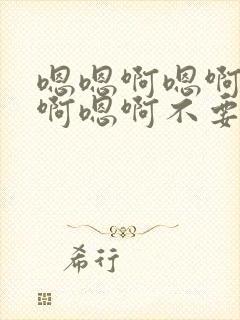 嗯嗯啊嗯啊
啊嗯啊不要
希行